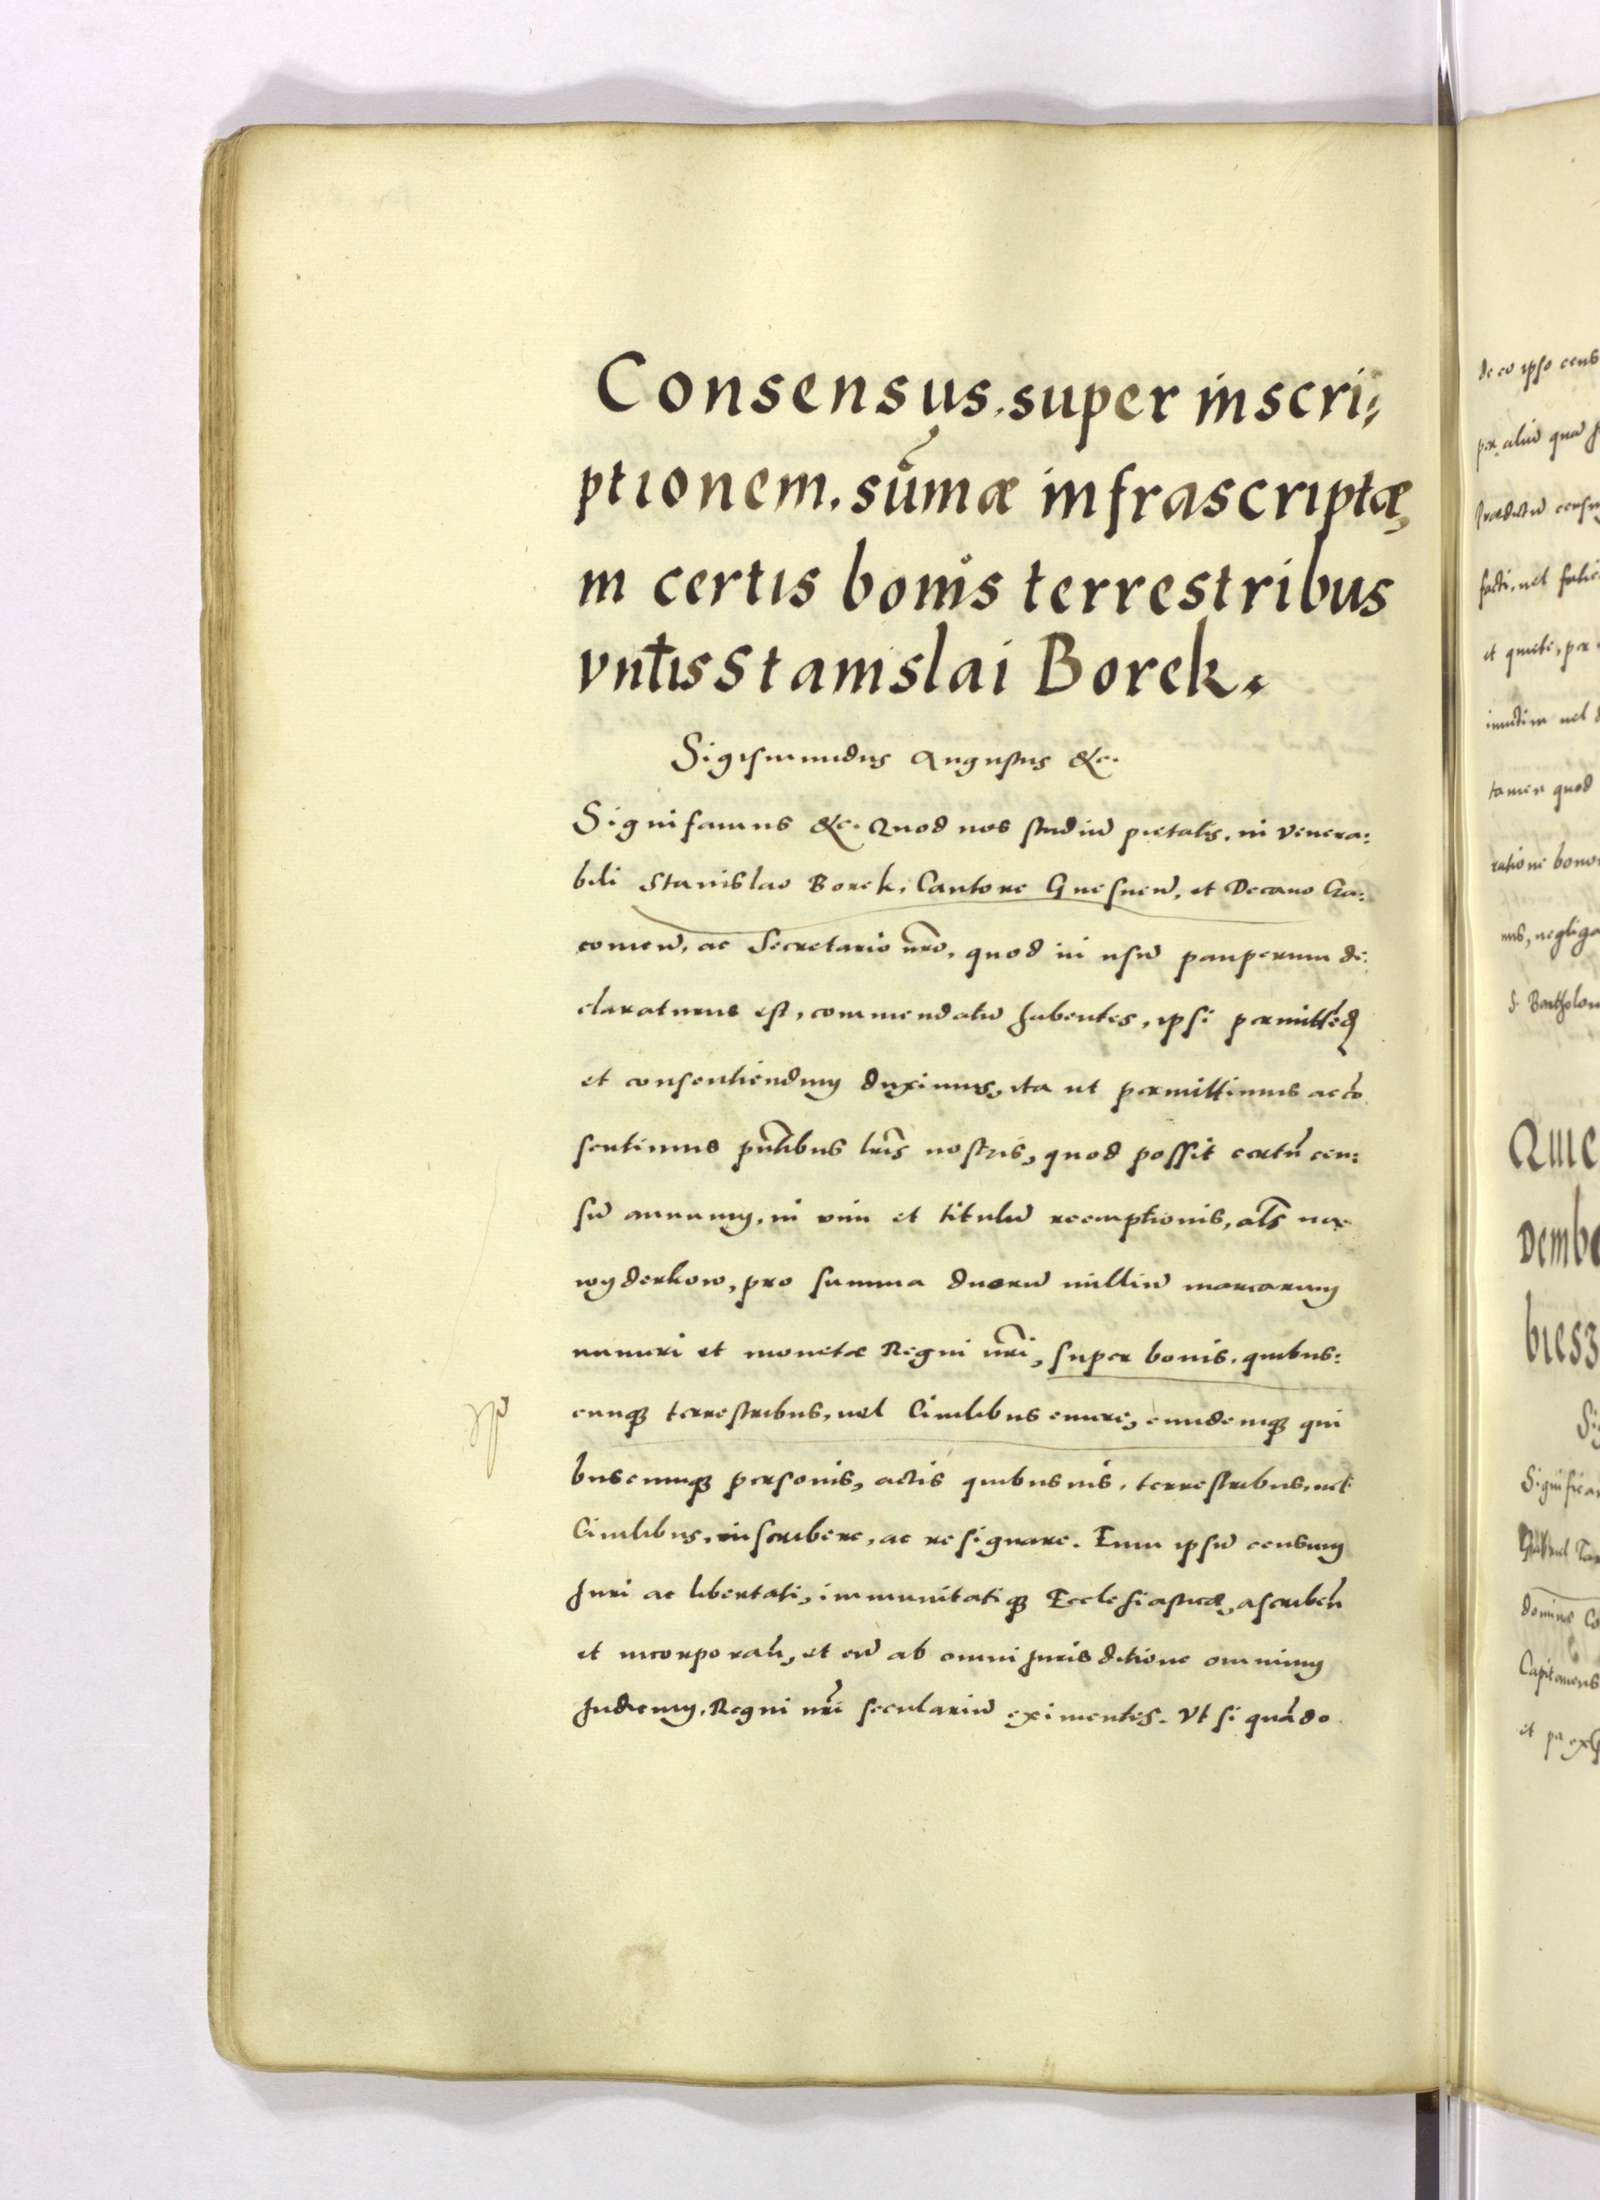 Consensus super inscri:
ptionem sūmæ infrascriptæ
in certis bonis terrestribus
Stanislai Borek.
Sigismundus Augustus &c.
Significamus &c. Quod nos studiū pietatis, in venera:
bili Stanislao Borek, Cantore Gnesnen̄, et Decano Cra:
covien̄, ac Secretario nr̄o, quod in usū pauperum de:
claraturus est, commendatū habentes, ipsi permitten̄d
et consentiendum duximus, ita ut permittimus ac cō
sentimus pn̄tibus lr̄is nostris, quod possit certū cen:
sū annuum, in vim et titulū reemptionis, al̄s na
wyderkow, pro summa duorū milliū marcarum
numeri et monetæ Regni nr̄i, super bonis, quibus:
cunq terrestribus, vel Civilibus emere, eundemq qui
buscunq personis, actis quibusvis, terrestribus, vel
Civilibus, inscribere, ac resignare. Eum ipsū censum
Juri ac libertati, immunitatiq Ecclesiasticæ, ascriben̄
et incorporan̄, et eū ab omni Jurisditione omnium
Judicum, Regni nr̄i seculariū eximentes. Ut si quādo
de eo ipso cens
per aliū quā
facti, vel
et quiete, per
tamen quod
ratione bono
S. Bartholom
Quie
Demb
biesz
Significam
Capitaneus
et